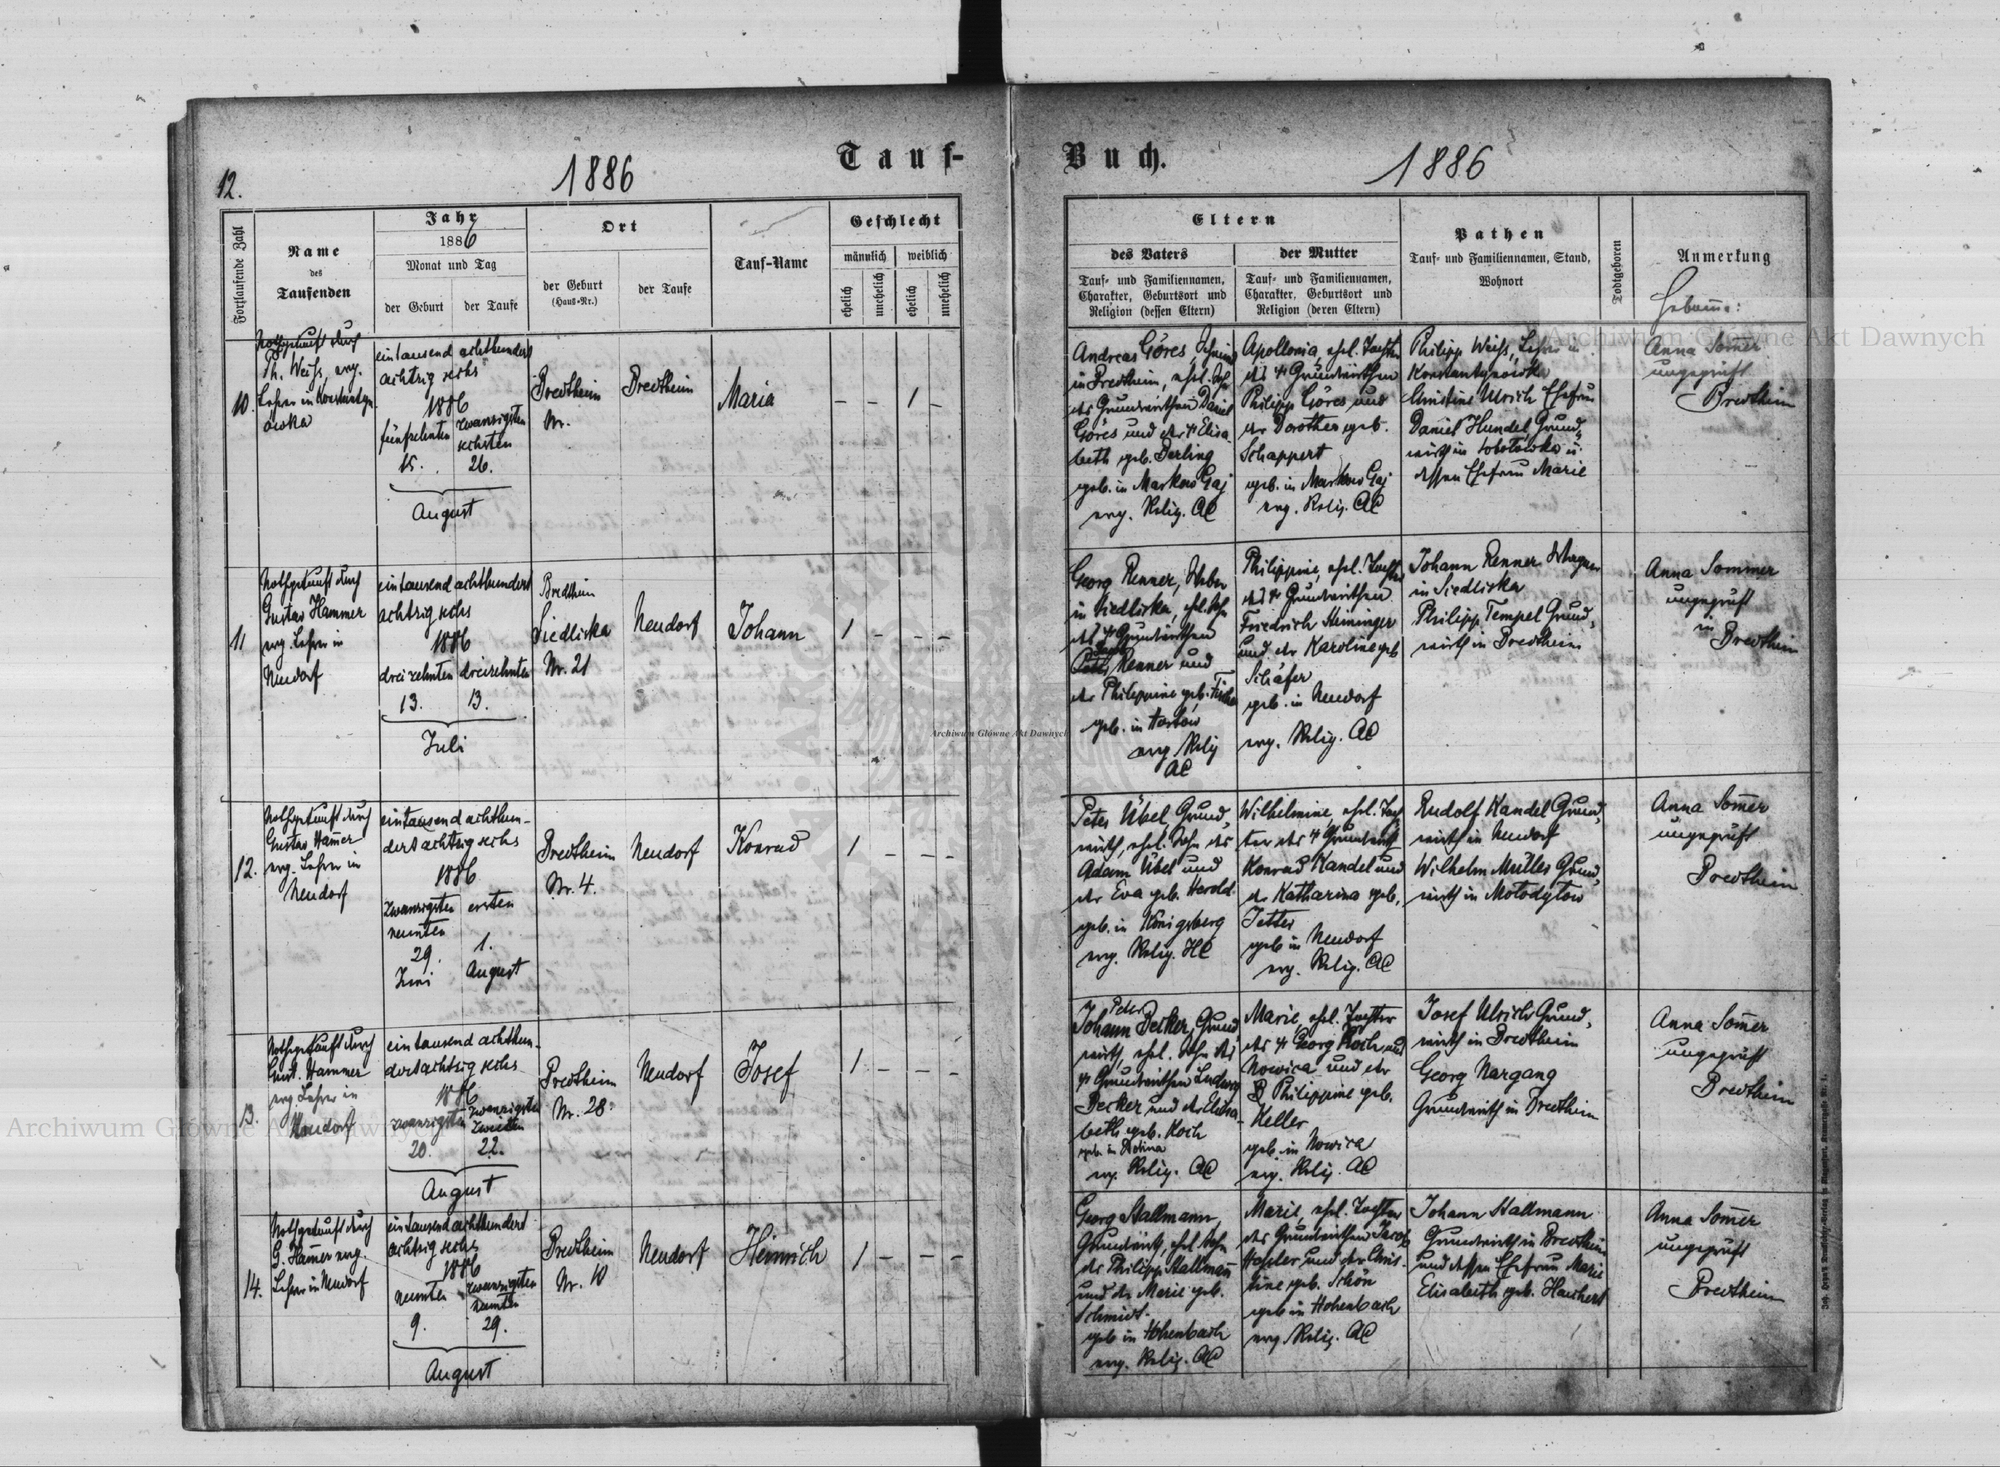 12.
1886
Tauf-
Buch.
1886
Fortlaufende Zahl
Name
des
Taufenden
Jahr
1886
Monat und Tag
der Geburt
der Taufe
Ort
der Geburt
(Haus-Nr.)
der Taufe
Tauf-Name
Geschlecht
männlich
weiblich
ehelich
unehelich
ehelich
unehelich
Eltern
des Vaters
Tauf- und Familiennamen,
Charakter, Geburtsort und
Religion (dessen Eltern)
der Mutter
Tauf- und Familiennamen,
Charakter, Geburtsort und
Religion (deren Eltern)
Pathen
Tauf- und Familiennamen, Stand,
Wohnort
Todtgeboren
Anmerkung
10.
Nothgetauft durch
Ph. Weiß, evg.
Lehrer in Konstantyn
ówka
eintausend achthundert
achtzig sechs
1886
fünfzehnten
15.
zwanzigsten
sechsten
26.
August
Bredtheim
Nr.
Bredtheim
Maria
– – 1 –
Andreas Göres
in Bredtheim, ehel. Sohn
des Grundwirthen Daniel
Göres und der † Elisa
beth geb. Berling
geb. in Markow Gaj
evg. Relig. AC
Apollonia, ehel. Tochter
des † Grundwirthen
Philipp Göres und
der Dorothea geb.
Schappert
geb. in Markow Gaj
evg. Relig. AC
Philipp Weiß, Lehrer in
Konstantynowka
Christine Ulrich Ehefrau
Daniel Hundel Grund,
wirth in Sobotowka u.
dessen Ehefrau Marie
Anna Som̄er
ungeprüft
Bredtheim
11
Nothgetauft durch
Gustav Hammer
evg. Lehrer in
Neudorf
eintausend achthundert
achtzig sechs
1886
dreizehnten dreizehnten
13. 13.
Juli
Bredtheim
Siedliska
Nr. 21
Neudorf
Johann
1 – – –
Georg Renner, Weber
in Siedliska, ehel. Sohn
des † Grundwirthen
Renner und
der Philippine geb.
geb. in
evg. Relig
AC
Philippine, ehel. Tochter
des † Grundwirthen
Friedrich Heininger
und der Karoline geb
Schäfer
geb. in Neudorf
evg. Relig. AC
Johann Renner Wagner
in Siedliska
Philipp Tempel Grund,
wirth in Bredtheim
Anna Sommer
ungeprüft
in
Bredtheim
12.
Nothgetauft durch
Gustav Ham̄er
evg. Lehrer in
Neudorf
eintausend achthun-
dertachtzig sechs
1886
zwanzigsten
neunten
29.
Juni
ersten
1.
August
Bredtheim
Nr. 4.
Neudorf
Konrad
1 – – –
Peter Übel, Grund,
wirth, ehel. Sohn des
Adam Übel und
der Eva geb. Herold.
geb. in Königsberg
evg. Relig. HC
Wilhelmine, ehel. Toch
ter des † Grundwirth
Konrad Kandel und
der Katharina geb.
Jetter
geb in Neudorf
evg. Relig. AC
Rudolf Kandel Grund,
wirth in Neudorf
Wilhelm Müller Grund,
wirth in Mołodyłow
Anna Som̄er
ungeprüft
Bredtheim
13.
Nothgetauft durch
Gust. Hammer
evg Lehrer in
Neudorf
eintausend achthun-
dertachtzig sechs
1886
zwanzigsten
20.
zwanzigsten
zweiten
22.
August
Bredtheim
Nr. 28.
Neudorf
Josef
1 – – –
Peter
Johann Becker, Grund,
wirth, ehel. Sohn des
† Grundwirthen Ludwig
Becker und der Elisa-
beth geb. Koch
evg. Relig. AC
Marie, ehel. Tochter
des † Georg Koch, aus
Nowica und der
Philippine geb.
Keller
geb. in Nowica
evg. Relig. AC
Josef Ulrich Grund,
wirth in Bredtheim
Georg Nargang
Grundwirth in Bredtheim
Anna Som̄er
ungeprüft
Bredtheim
14.
Nothgetauft durch
G. Ham̄er evg.
Lehrer in Neudorf
eintausend achthundert
achtzig sechs
1886
neunten
9.
zwanzigsten
neunten
29.
August
Bredtheim
Nr. 10
Neudorf
Heinrich
1 – – –
Georg Stallmann,
Grundwirth, ehel. Sohn
des Philipp Stallman̄
und der Marie geb.
Schmidt.
geb in Hohenbach
evg. Relig. AC
Marie, ehel. Tochter
des Grundwirthen Jacob
Hasler und der Chris-
tine geb. Schön
geb in Hohenbach
evg Relig. AC
Johann Stallmann
Grundwirth in Bredtheim
und dessen Ehefrau Marie
Elisabeth geb. Hauhert
Anna Som̄er
ungeprüft
Bredtheim
Archiwum Główne Akt Dawnych
Archiwum Główne Akt Dawnych
Archiwum Główne Akt Dawnych